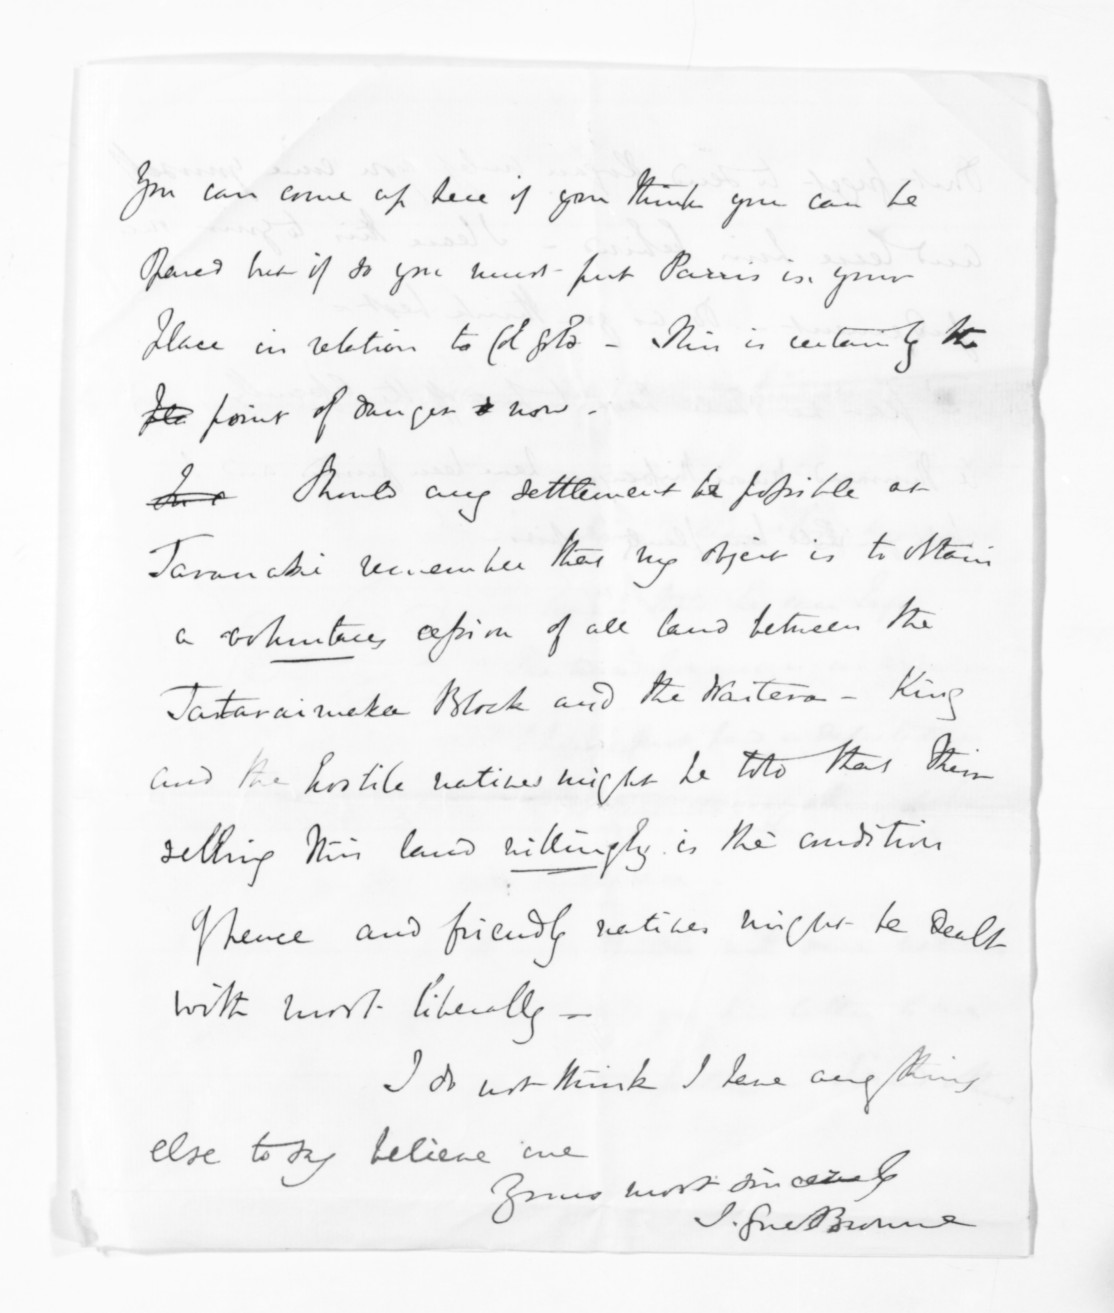 You can come up here if you think you can be
spared but if so you must put Parris in your
place in relation to Col Gold - This is certainly the
point of danger now -
Should any settlement be possible at
Taranaki remember that my object is to obtain
a voluntary cession of all land between the
Tataraimaka Block and the Waitera - King
and the hostile natives might be told that their
selling this land willingly is the condition
of peace and friendly natives might be dealt
with most liberally -
I do not think I have any thing
else to say believe me
Yours most sincerely
T. Gore Browne